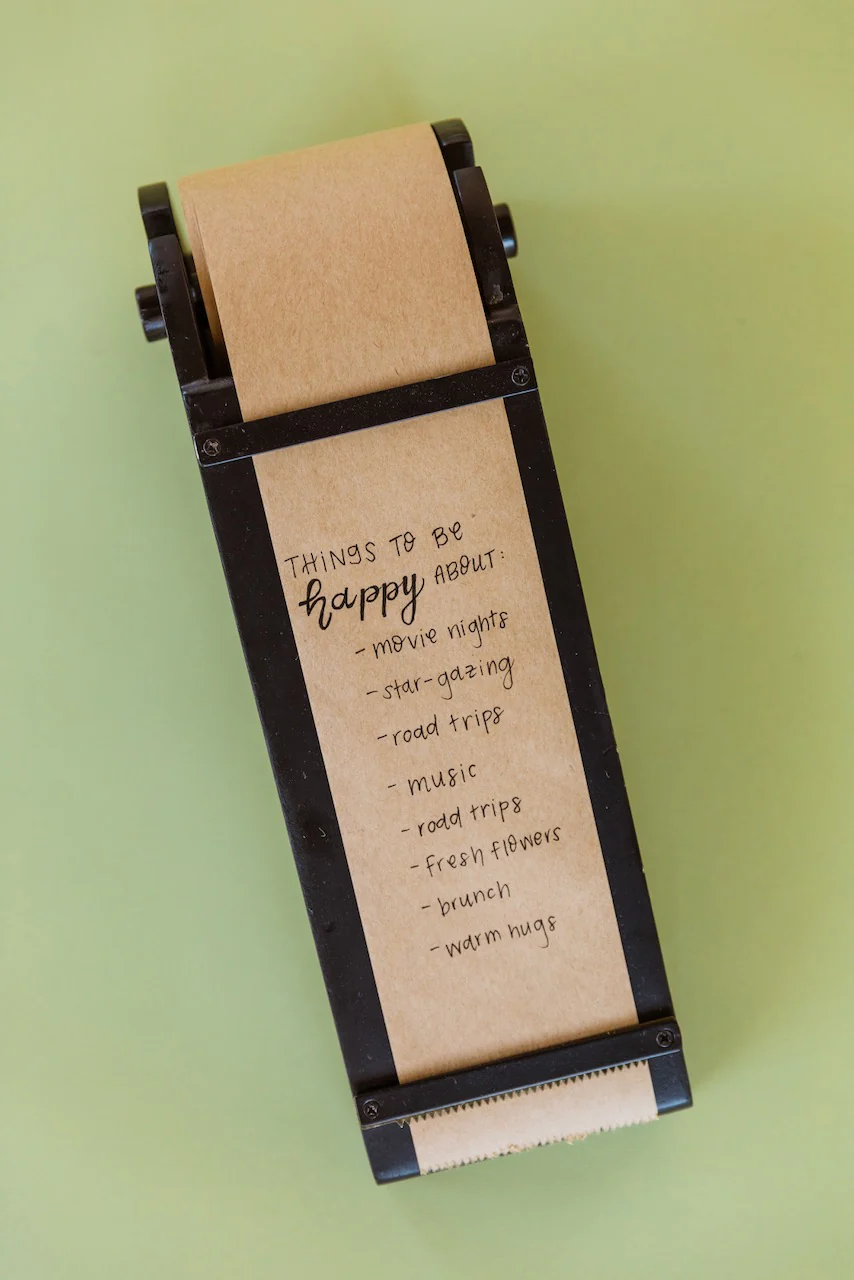 THiNgS TO Be
happy ABOUT:
- movie nights
- star-gazing
- road trips
- music
- road trips
- fresh flowers
- brunch
- warm hugs